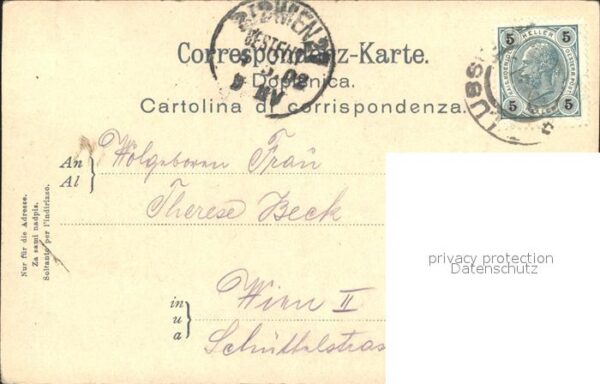 Correspondenz-Karte.
Dopisnica.
Cartolina di corrispondenza.
5 HELLER 5
5 5
2/1 WIEN
BESTELLT
02
LUSS
An
Al
Wolgeboren Frau
Therese Beck
in
u
a
Wien II
Schüttelstras
Nur für die Adresse.
Za sami nadpis.
Soltanto per l'indirizzo.
privacy protection
Datenschutz